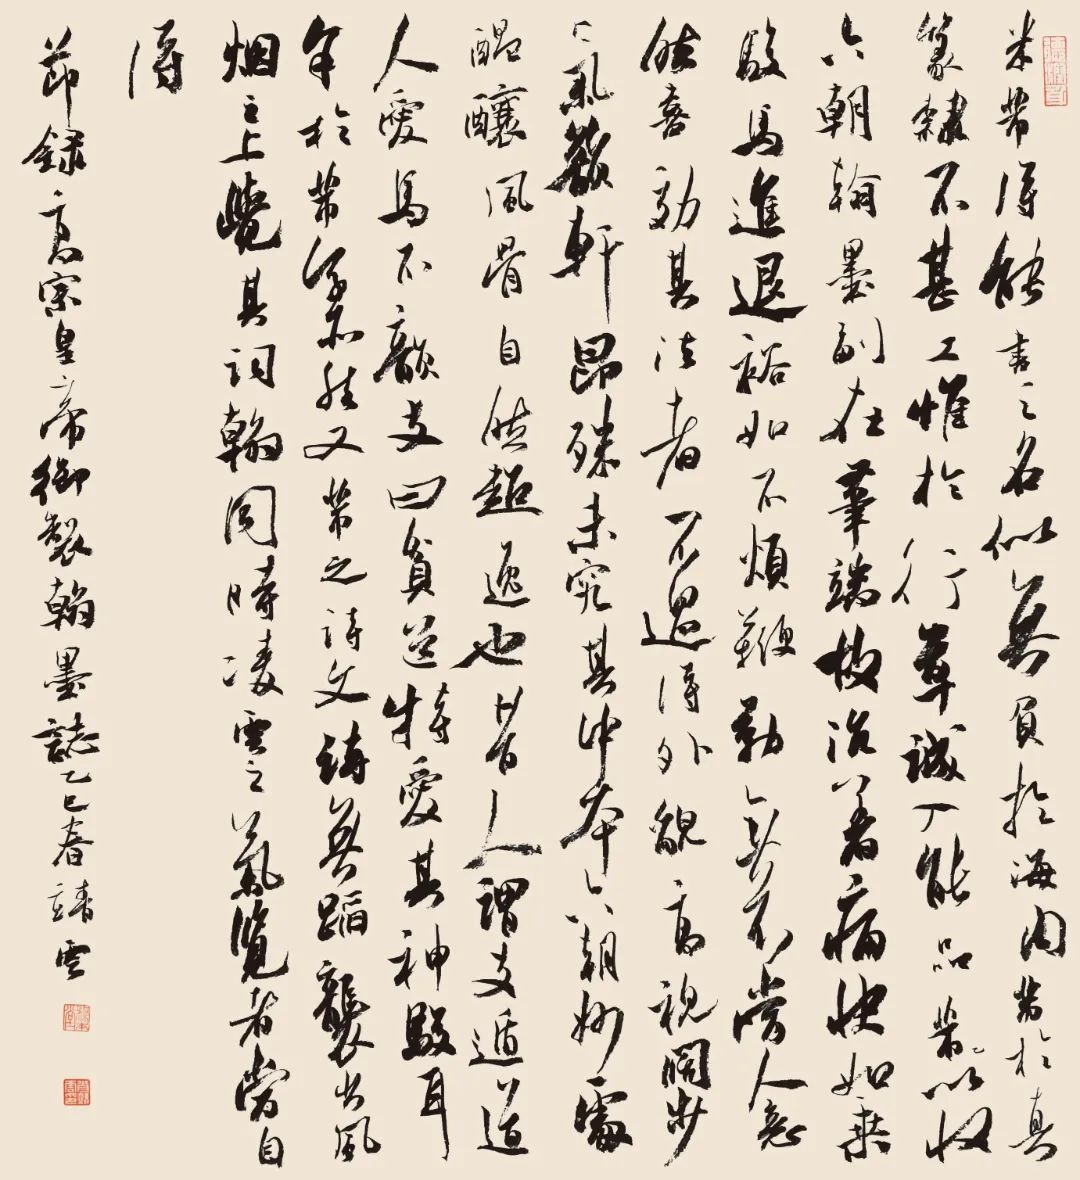 米芾得能書之名似無負於海內芾於真
篆隸不甚工惟於行草誠入能品芾以收
六朝翰墨副在筆端故沉著痛快如乘
駿馬進退裕如不煩鞭勒無不當人意
然喜効其法者不過得外貌高視闊步
氣韻軒昂殊未究其中本六朝妙處
醞釀風骨自然超逸也昔人謂支遁道
人愛馬不韻支曰貧道特愛其神駿耳
余於芾字亦然又芾之詩文詩無蹈襲出風
烟之上覺其詞翰同時凌雲之氣覽者當自
得
節録高宗皇帝御製翰墨誌乙巳春靖雲